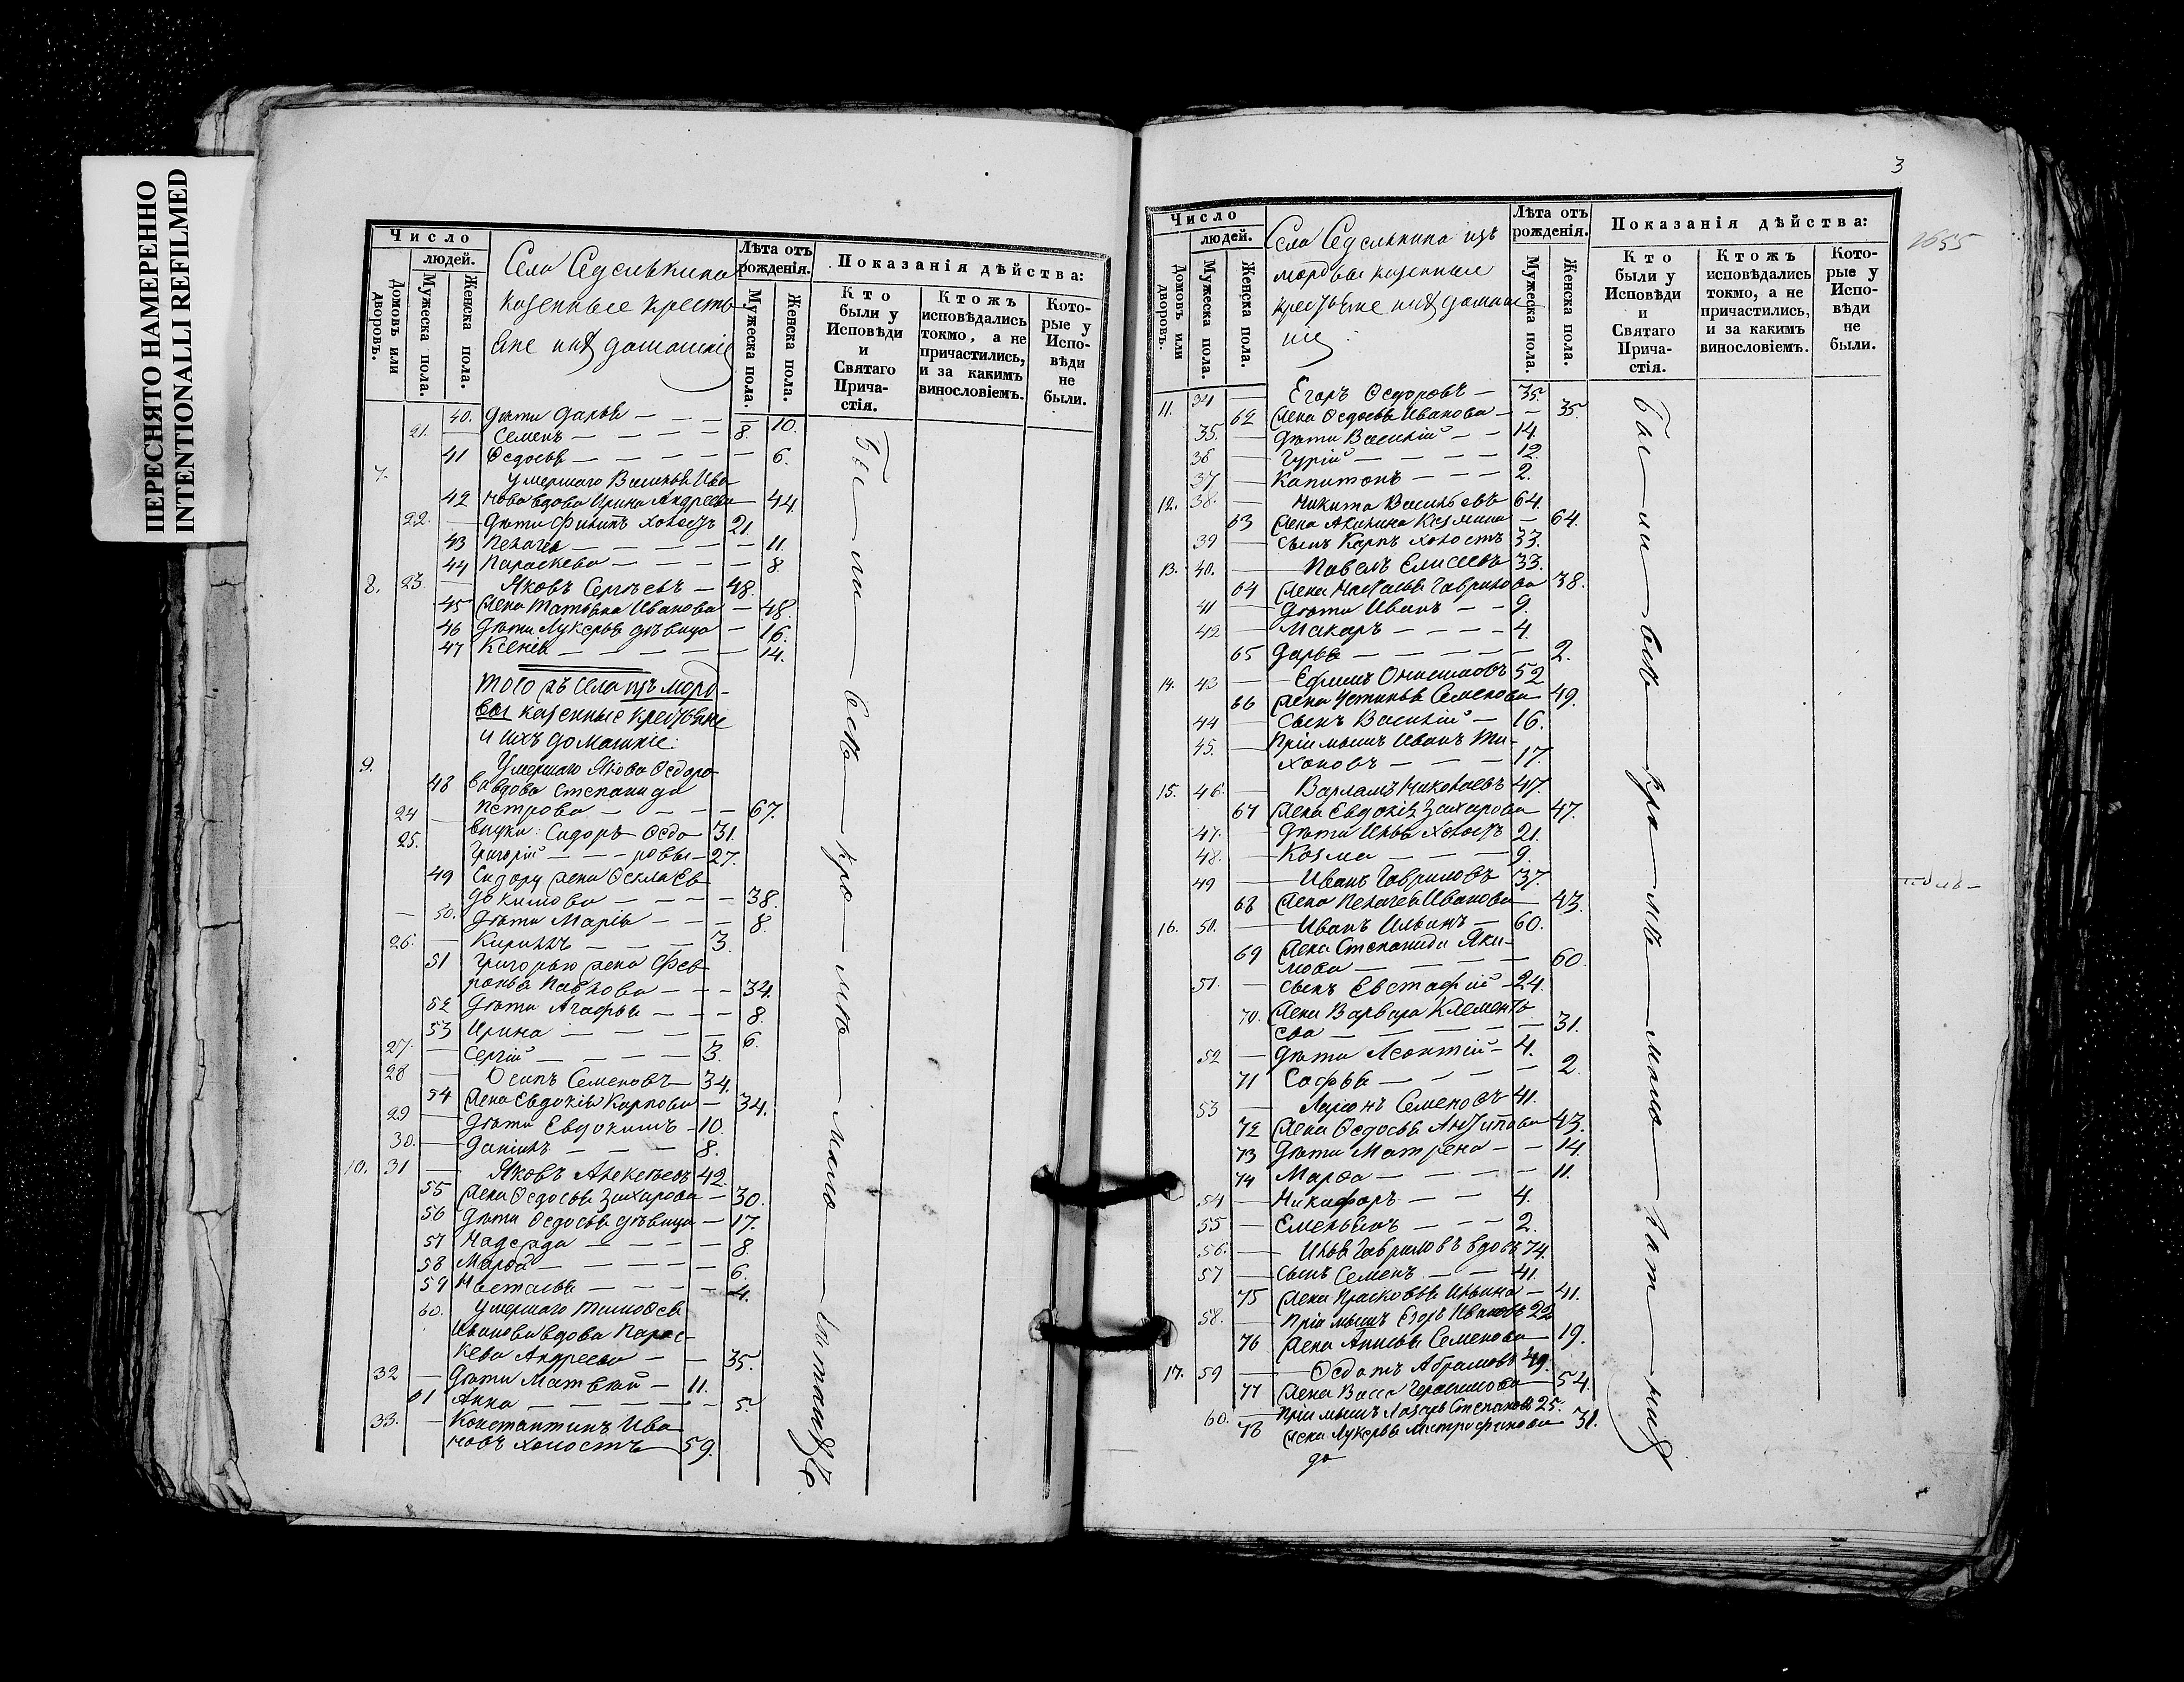 ПЕРЕСНЯТО НАМЕРЕННО
INTENTIONALLI REFILMED
Число
людей.
Домовъ или дворовъ.
Мужеска пола.
Женска пола.
Села Седелькина
казенные кресть
яне и ихъ домашніе
Лѣта отъ рожденія.
Мужеска пола.
Женска пола.
Показанія дѣйства:
Кто были у Исповѣди и Святаго Причастія.
Ктожъ исповѣдались токмо, а не причастились, и за какимъ винословіемъ.
Которые у Исповѣди не были.
40. Дѣти Дарья — — — 10.
21. Семенъ — — — — 8.
41 Ѳедосья — — — — — 6.
7. Умершаго Василья Ива
42 нова вдова Ирина Андреева — 44
22. — Дѣти Филипъ холостъ 21.
43 Пелагея — — — — — 11.
44 Параскева — — — — 8.
8. 23. — Яковъ Сергѣевъ — 48.
45 Жена Татьяна Иванова — 48.
46 Дѣти Лукерья дѣвица — 16.
47 Ксенія — — — — — 14.
того жъ села изъ морд-
вы казенные крестьяне
и ихъ домашніе:
9. Умершаго Якова Ѳедоро
48 ва вдова Степанида
Петрова — — — — 67.
24 — внуки: Сидоръ Ѳедо 31.
25. Григорій — — — ровы — 27.
49 Сидору жена Ѳекла Ев
докимова — — — — 38.
50. Дѣти Марія — — — 8.
26. — Кириллъ — — — 3.
51 Григорью жена Фев
ронья Павлова — — — 34.
52 Дѣти Агафья — — — 8.
53 Ирина — — — — 6.
27. — Сергій — — — — 3.
28 — Осипъ Семеновъ — 34.
54 Жена Евдокія Карпова — 34.
29 — Дѣти Евдокимъ — 10.
30. — Даніилъ — — — 8.
10. 31 — Яковъ Алексѣевъ 42.
55 Жена Ѳедосья Захарова — 30.
56 Дѣти Ѳедосья дѣвица — 17.
57 Надежда — — — — 8.
58 Марѳа — — — — — 6.
59 Настасья — — — — 4.
60. Умершаго Тимоѳея
Иванова вдова Парас-
кева Андреева — — 35.
32 — Дѣти Матвѣй — 11.
61 Анна — — — — — 5.
33. — Константинъ Ива
новъ холостъ — 59.
Бы — ли — всѣ — кро — мѣ — мало —
3
1655
Число
людей.
Домовъ или дворовъ.
Мужеска пола.
Женска пола.
Села Седелькина изъ
мордвы казенные
крестьяне и ихъ домаш
ніе
Лѣта отъ рожденія.
Мужеска пола.
Женска пола.
Показанія дѣйства:
Кто были у Исповѣди и Святаго Причастія.
Ктожъ исповѣдались токмо, а не причастились, и за какимъ винословіемъ.
Которые у Исповѣди не были.
11. 34 — Егоръ Ѳедоровъ — 35.
62 Жена Ѳедосья Иванова — — 35
35. — Дѣти Василій — — 14.
36 — Гурій — — — — 12.
37 — Капитонъ — — — 2.
12. 38. — Никита Васильевъ 64.
63 Жена Акилина Козмина — 64.
39 — Сынъ Карпъ холостъ 33.
13. 40. — Павелъ Елисеевъ 33.
64 Жена Настасья Гаврилова 38.
41 — Дѣти Иванъ — — 9.
42 — Макаръ — — — — 4.
65 Дарья — — — — — 2.
14. 43 — Ефимъ Онисимовъ 52
66 Жена Устинья Семенова 49.
44 — Сынъ Василій — 16.
45. — Пріимышъ Иванъ Ти-
хоновъ — — — 17.
15. 46. — Варламъ Николаевъ 47.
67 Жена Евдокія Захарова 47.
47. — Дѣти Илья холостъ 21.
48. — Козма — — — 9.
49 — Иванъ Гавриловъ 37.
68 Жена Пелагея Иванова — 43.
16. 50. — Иванъ Ильинъ — 60.
69 Жена Степанида Яки-
мова — — — — — 60.
51. — Сынъ Евстафій — 24.
70. Жена Варвара Клементь
ева — — — — — 31.
52 — Дѣти Леонтій — 4.
71 Софья — — — — 2.
53 — Ларіонъ Семеновъ 41.
72 Жена Ѳедосья Антипова 43.
73 Дѣти Матрена — — 14
74 Марѳа — — — — 11.
54 — Никифоръ — — 4.
55 — Емельянъ — — — 2.
56. — Илья Гавриловъ вдовъ 74.
57 — Сынъ Семенъ — — 41.
75 Жена Прасковья Ильина — 41.
58. — Пріимышъ Егоръ Ивановъ 22
76 Жена Анисья Семенова — 19.
17. 59 — Ѳедотъ Абрамовъ 49.
77 Жена Васса Герасимова — 54.
60. — Пріимышъ Лазарь Степановъ 25.
78 Жена Лукерья Митрофанова 31.
до
Бы — ли — всѣ — кро — мѣ — мало — лѣт — нихъ